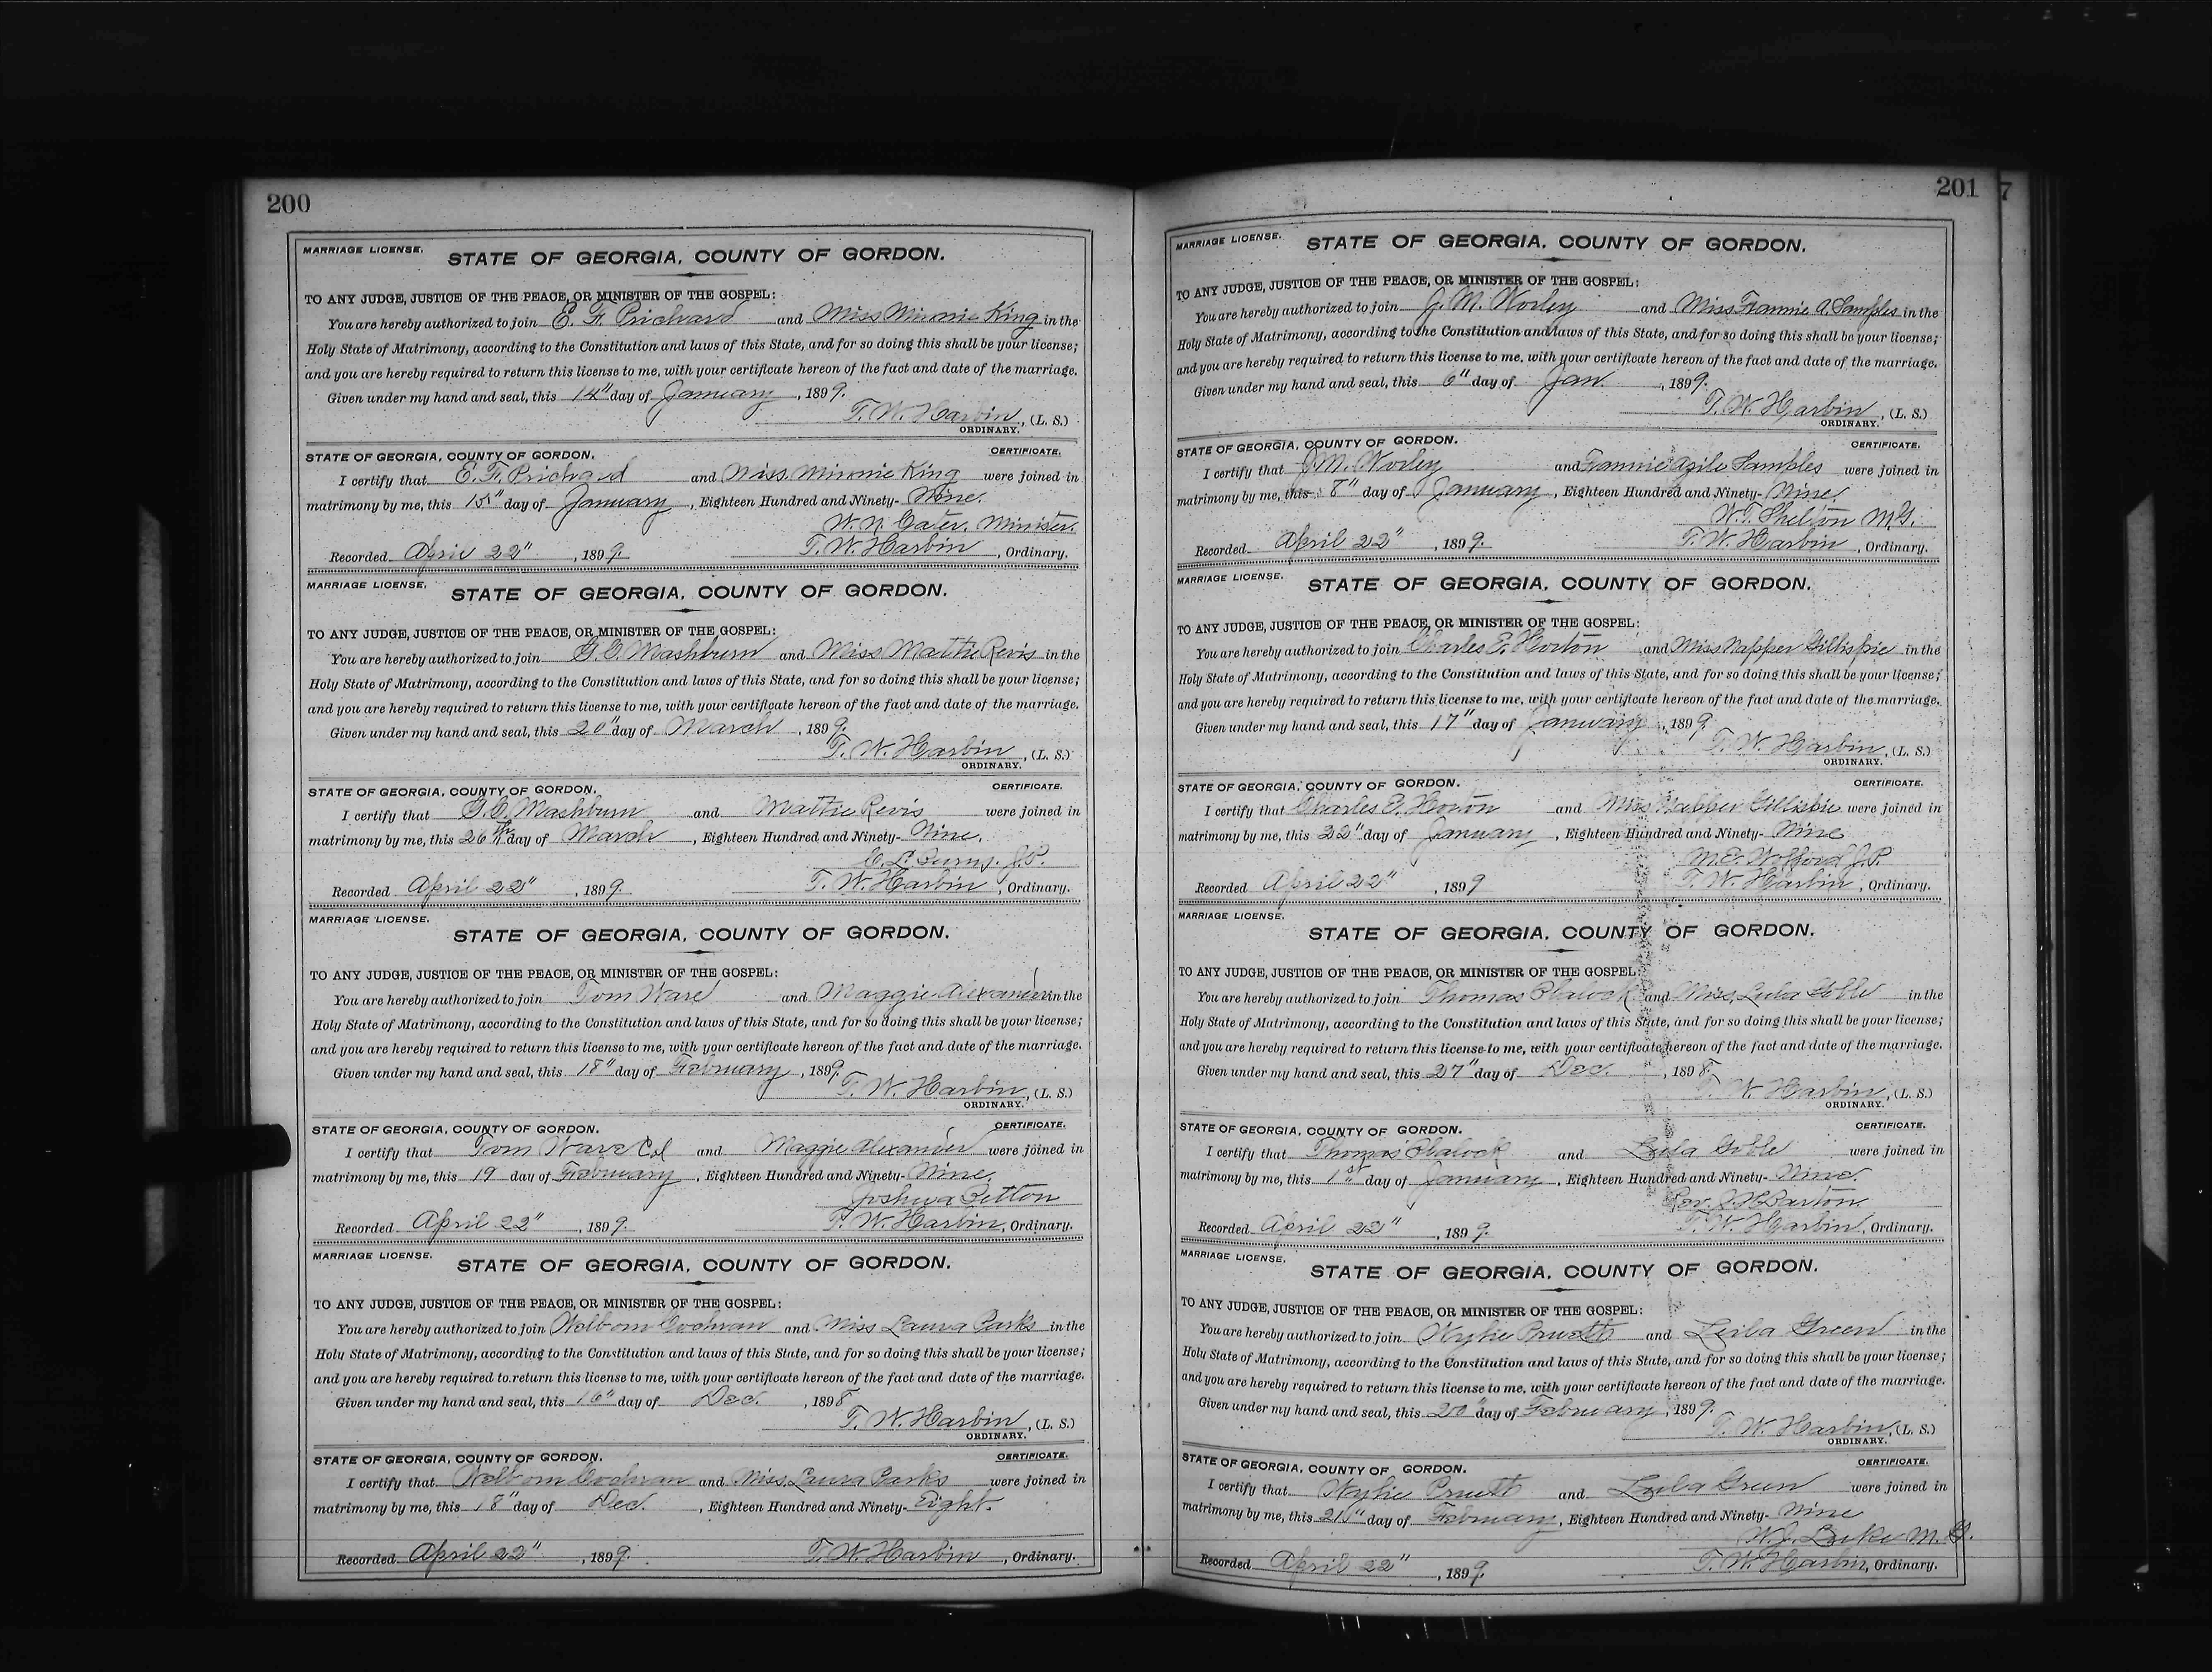 200
MARRIAGE LICENSE.
STATE OF GEORGIA, COUNTY OF GORDON.
TO ANY JUDGE, JUSTICE OF THE PEACE, OR MINISTER OF THE GOSPEL:
You are hereby authorized to join E. F. Prichard and Miss Minnie King in the
Holy State of Matrimony, according to the Constitution and laws of this State, and for so doing this shall be your license;
and you are hereby required to return this license to me, with your certificate hereon of the fact and date of the marriage.
Given under my hand and seal, this 14" day of January, 1899.
T. W. Harbin, (L. S.)
ORDINARY.
STATE OF GEORGIA, COUNTY OF GORDON. CERTIFICATE.
I certify that E. F. Prichard and Miss. Minnie King were joined in
matrimony by me, this 15" day of January, Eighteen Hundred and Ninety-Nine.
W. N. Cater. Minister.
Recorded April 22", 1899. T. W. Harbin, Ordinary.
MARRIAGE LICENSE.
STATE OF GEORGIA, COUNTY OF GORDON.
TO ANY JUDGE, JUSTICE OF THE PEACE, OR MINISTER OF THE GOSPEL:
You are hereby authorized to join G. C. Mashburn and Miss Mattie Revis in the
Holy State of Matrimony, according to the Constitution and laws of this State, and for so doing this shall be your license;
and you are hereby required to return this license to me, with your certificate hereon of the fact and date of the marriage.
Given under my hand and seal, this 20" day of March, 1899.
T. W. Harbin, (L. S.)
ORDINARY.
STATE OF GEORGIA, COUNTY OF GORDON. CERTIFICATE.
I certify that G. C. Mashburn and Mattie Revis were joined in
matrimony by me, this 26th day of March, Eighteen Hundred and Ninety-Nine.
J.P.
Recorded April 22", 1899. T. W. Harbin, Ordinary.
MARRIAGE LICENSE.
STATE OF GEORGIA, COUNTY OF GORDON.
TO ANY JUDGE, JUSTICE OF THE PEACE, OR MINISTER OF THE GOSPEL:
You are hereby authorized to join Tom Ware and Maggie Alexander in the
Holy State of Matrimony, according to the Constitution and laws of this State, and for so doing this shall be your license;
and you are hereby required to return this license to me, with your certificate hereon of the fact and date of the marriage.
Given under my hand and seal, this 18" day of February, 1899.
T. W. Harbin, (L. S.)
ORDINARY.
STATE OF GEORGIA, COUNTY OF GORDON. CERTIFICATE.
I certify that Tom Ware Col and Maggie Alexander were joined in
matrimony by me, this 19 day of February, Eighteen Hundred and Ninety-Nine.
Joshua
Recorded April 22", 1899. T. W. Harbin, Ordinary.
MARRIAGE LICENSE.
STATE OF GEORGIA, COUNTY OF GORDON.
TO ANY JUDGE, JUSTICE OF THE PEACE, OR MINISTER OF THE GOSPEL:
You are hereby authorized to join Welborn Cochran and Miss Laura Parks in the
Holy State of Matrimony, according to the Constitution and laws of this State, and for so doing this shall be your license;
and you are hereby required to return this license to me, with your certificate hereon of the fact and date of the marriage.
Given under my hand and seal, this 16" day of Dec., 1898
T. W. Harbin, (L. S.)
ORDINARY.
STATE OF GEORGIA, COUNTY OF GORDON. CERTIFICATE.
I certify that Welborn Cochran and Miss. Laura Parks were joined in
matrimony by me, this 18" day of Dec., Eighteen Hundred and Ninety-Eight.
Recorded April 22", 1899. T. W. Harbin, Ordinary.
201
7
MARRIAGE LICENSE.
STATE OF GEORGIA, COUNTY OF GORDON.
TO ANY JUDGE, JUSTICE OF THE PEACE, OR MINISTER OF THE GOSPEL:
You are hereby authorized to join J. M. Worley and Miss Frannie A. Samples in the
Holy State of Matrimony, according to the Constitution and laws of this State, and for so doing this shall be your license;
and you are hereby required to return this license to me, with your certificate hereon of the fact and date of the marriage.
Given under my hand and seal, this 6" day of Jan., 1899.
T. W. Harbin, (L. S.)
ORDINARY.
STATE OF GEORGIA, COUNTY OF GORDON. CERTIFICATE.
I certify that J. M. Worley and Frannie Azile Samples were joined in
matrimony by me, this 8" day of January, Eighteen Hundred and Ninety-Nine.
W. T. Shelton M.G.
Recorded April 22", 1899. T. W. Harbin, Ordinary.
MARRIAGE LICENSE.
STATE OF GEORGIA, COUNTY OF GORDON.
TO ANY JUDGE, JUSTICE OF THE PEACE, OR MINISTER OF THE GOSPEL:
You are hereby authorized to join Charles E. Horton and Miss Napper Gillispie in the
Holy State of Matrimony, according to the Constitution and laws of this State, and for so doing this shall be your license;
and you are hereby required to return this license to me, with your certificate hereon of the fact and date of the marriage.
Given under my hand and seal, this 17" day of January, 1899.
T. W. Harbin, (L. S.)
ORDINARY.
STATE OF GEORGIA, COUNTY OF GORDON. CERTIFICATE.
I certify that Charles E. Horton and Miss Napper Gillispie were joined in
matrimony by me, this 22" day of January, Eighteen Hundred and Ninety-Nine
M. E. Wofford J.P.
Recorded April 22", 1899 T. W. Harbin, Ordinary.
MARRIAGE LICENSE.
STATE OF GEORGIA, COUNTY OF GORDON.
TO ANY JUDGE, JUSTICE OF THE PEACE, OR MINISTER OF THE GOSPEL:
You are hereby authorized to join Thomas Blalock and Miss. Lula Goble in the
Holy State of Matrimony, according to the Constitution and laws of this State, and for so doing this shall be your license;
and you are hereby required to return this license to me, with your certificate hereon of the fact and date of the marriage.
Given under my hand and seal, this 27" day of Dec., 1898.
T. W. Harbin, (L. S.)
ORDINARY.
STATE OF GEORGIA, COUNTY OF GORDON. CERTIFICATE.
I certify that Thomas Blalock and Lula Goble were joined in
matrimony by me, this 1st day of January, Eighteen Hundred and Ninety-Nine.
Rev. J. H. Barton.
Recorded April 22", 1899. T. W. Harbin, Ordinary.
MARRIAGE LICENSE.
STATE OF GEORGIA, COUNTY OF GORDON.
TO ANY JUDGE, JUSTICE OF THE PEACE, OR MINISTER OF THE GOSPEL:
You are hereby authorized to join Wylie Pruett and Leila Green in the
Holy State of Matrimony, according to the Constitution and laws of this State, and for so doing this shall be your license;
and you are hereby required to return this license to me, with your certificate hereon of the fact and date of the marriage.
Given under my hand and seal, this 20" day of February, 1899.
T. W. Harbin, (L. S.)
ORDINARY.
STATE OF GEORGIA, COUNTY OF GORDON. CERTIFICATE.
I certify that Wylie Pruett and Leila Green were joined in
matrimony by me, this day of February, Eighteen Hundred and Ninety-Nine
W. J. M. G.
Recorded April 22", 1899. T. W. Harbin, Ordinary.